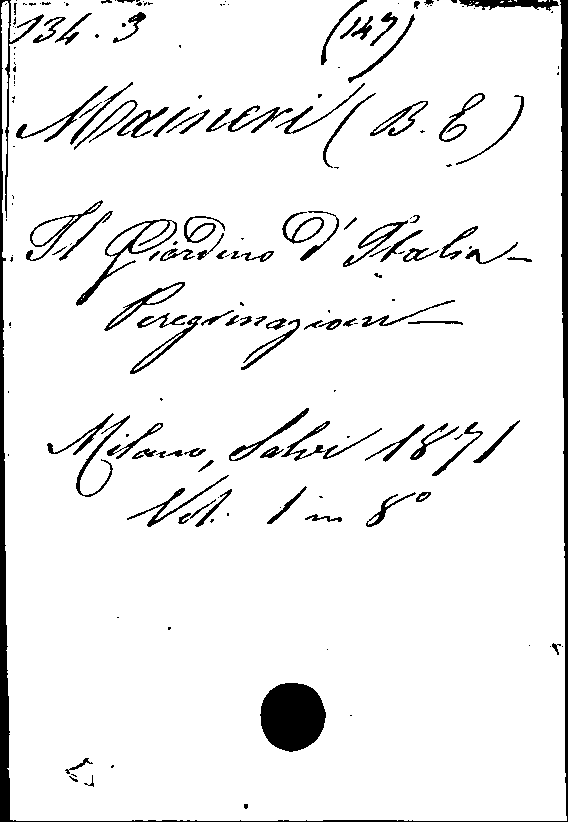 134. 3 (147)
Maineri (B. E)
Il Giardino d'Italia -
Peregrinazioni -
Milano, Salvi 1871
Vol. 1 in 8º